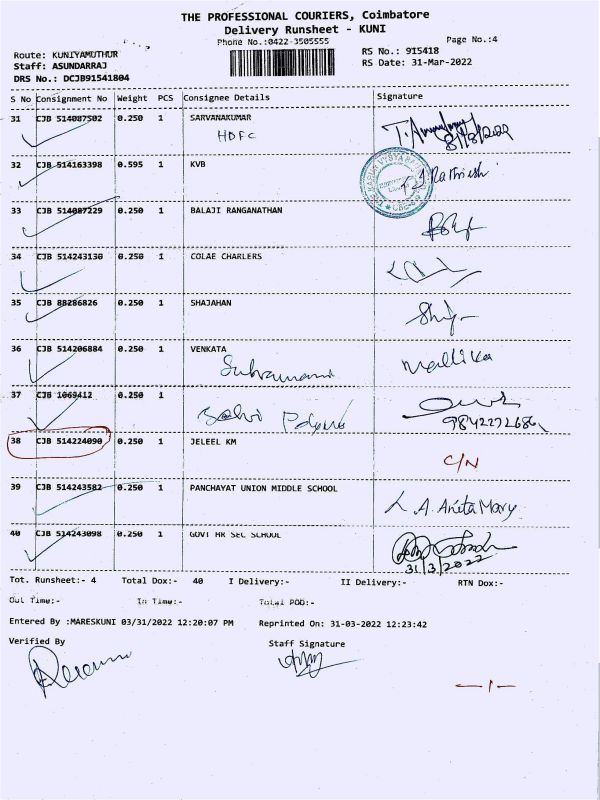 THE PROFESSIONAL COURIERS, Coimbatore
Delivery Runsheet - KUNI
Phone No.:0422-3505555
Page No.:4
Route: KUNIYAMUTHUR
RS No.: 915418
Staff: ASUNDARRAJ
RS Date: 31-Mar-2022
DRS No.: DCJB91541804
S No Consignment No Weight PCS Consignee Details Signature
31 CJB 514087502 0.250 1 SARVANAKUMAR
HDFC
32 CJB 514163398 0.595 1 KVB
33 CJB 514087229 0.250 1 BALAJI RANGANATHAN
34 CJB 514243130 0.250 1 COLAE CHARLERS
35 CJB 88286826 0.250 1 SHAJAHAN
36 CJB 514206884 0.250 1 VENKATA
Mallika
37 CJB 1069412 0.250 1
38 CJB 514224090 0.250 1 JELEEL KM
C/N
39 CJB 514243582 0.250 1 PANCHAYAT UNION MIDDLE SCHOOL
A. Anita Mary
40 CJB 514243098 0.250 1 GOVT HR SEC SCHOOL
31/3/2022
Tot. Runsheet:- 4 Total Dox:- 40 I Delivery:- II Delivery:- RTN Dox:-
Out Time:- In Time:- Total POD:-
Entered By :MARESKUNI 03/31/2022 12:20:07 PM Reprinted On: 31-03-2022 12:23:42
Verified By Staff Signature
—1—